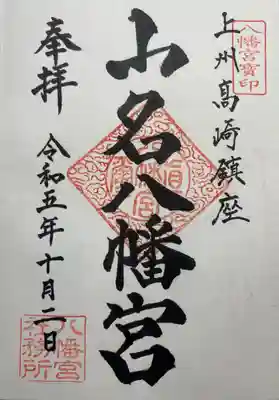 八幡宮寳印
上州高崎鎮座
山名八幡宮
奉拝
令和五年十月二日
八幡宮
社務所